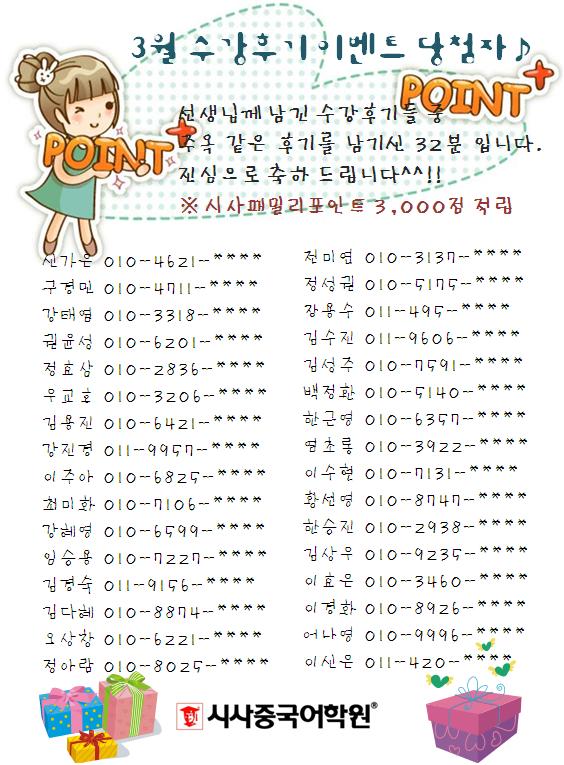 3월 수강후기 이벤트 당첨자♪
POINT+
POINT+
선생님께 남긴 수강후기들 중
주옥 같은 후기를 남기신 32분 입니다.
진심으로 축하 드립니다^^!!
※ 시사패밀리포인트 3,000점 적립
신가은 010--4621--****
구경민 010--4711--****
강태엽 010--3318--****
권윤성 010--6201--****
정효삼 010--2836--****
우교호 010--3206--****
김용진 010--6421--****
강진경 011--9957--****
이주아 010--6825--****
최미화 010--7106--****
강혜영 010--6599--****
임승용 010--7227--****
김경숙 011--9156--****
김다혜 010--8874--****
오상창 010--6221--****
정아람 010--8025--****
전미연 010--3137--****
정성권 010--5175--****
장용수 011--495--****
김수진 011--9606--****
김성주 010--7591--****
백정환 010--5140--****
한근영 010--6357--****
염초롱 010--3922--****
이수현 010--7131--****
황선영 010--8747--****
한승진 010--2938--****
김상우 010--9235--****
이효은 010--3460--****
이경화 010--8926--****
어나영 010--9996--****
이신은 011--420--****
시사중국어학원®